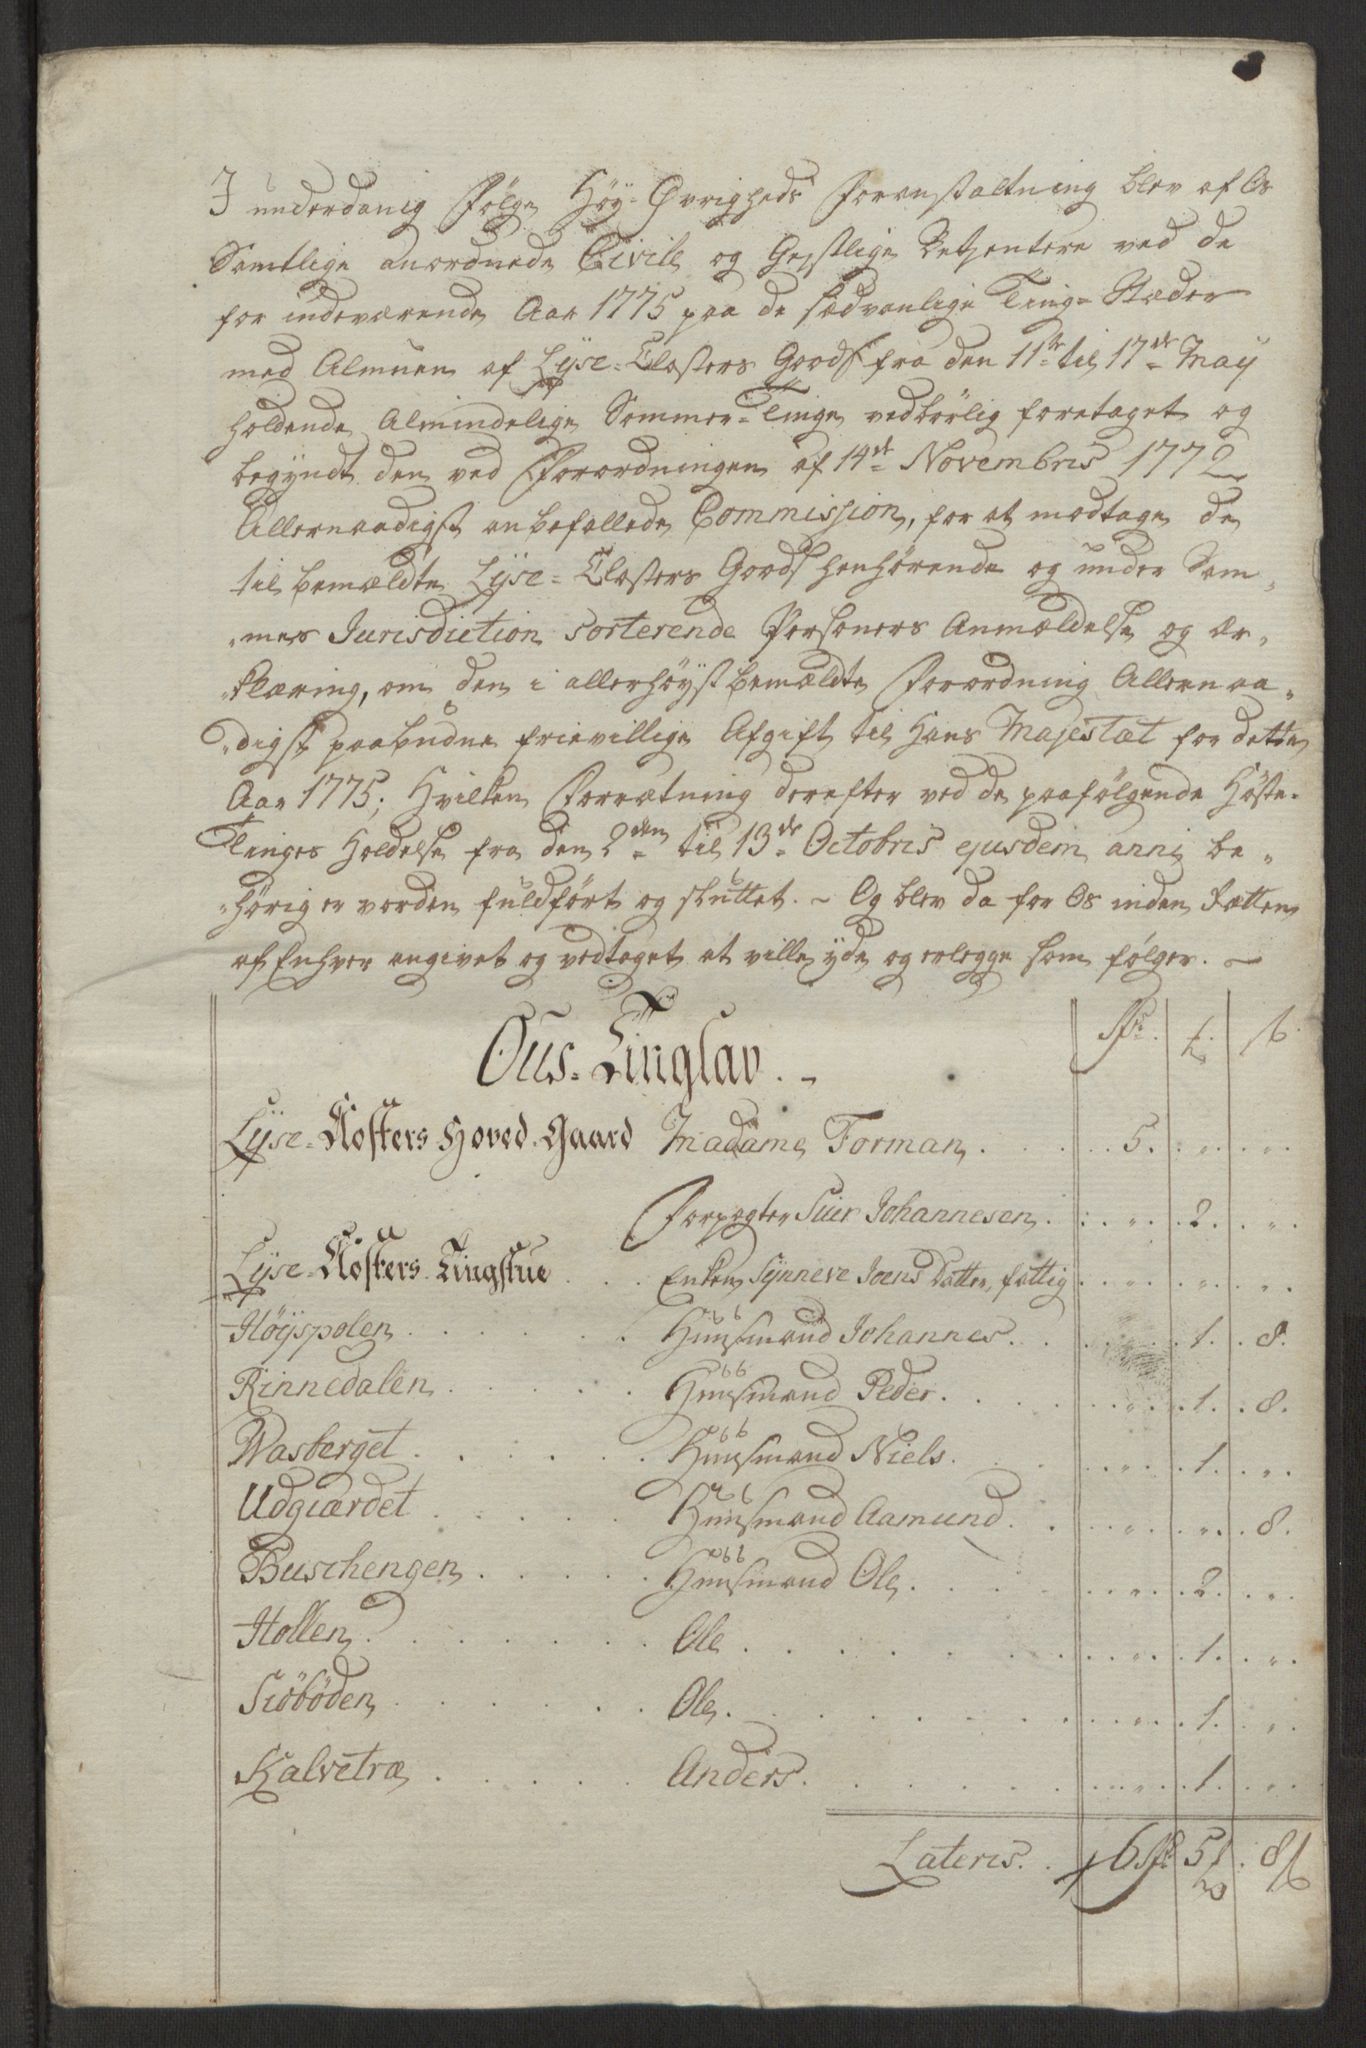 I underdanig Følge Høy-Øvrigheds Foranstaltning blev af Os
Samtlige anordnede Civile og Gejstlige Betjentere ved de
for indeværende Aar 1775 paa de sædvanlige Ting-Stæder
med Almuen af Lyse-Closters Gods fra den 11te til 17de May
holdende Almindelige Sommer-Tinge vedbørlig foretaget og
begyndt den ved Forordningen af 14de Novembris 1772
Allernaadigst anbefallede Commission, for at modtage de
til bemældte Lyse-Closters Gods henhørende og under Sam-
-mes Jurisdiction sorterende Personers Anmældelse og Er-
-klæring, om den i allerhøystbemældte Forordning Allernaa-
-digst paabudne frievillige Afgift til Hans Majestæt for dette
Aar 1775; Hvilken Forretning derefter ved de paafølgende Høste-
Tinges Holdelse fra den 2den til 13de Octobris ejusdem anni be-
-hørig er vorden fuldført og sluttet. - Og blev da for Os inden Rætten
af Enhver angivet og vedtaget at ville yde og erlegge som følger. -
Ous-Tinglav. -
Lyse-Klosters Hoved-Gaard Madame Forman. 5. " "
Forpagter Siur Johannesen. " 2. "
Lyse-Klosters Tingstue Enken Synneve Joens Datter, fattig " " "
Høyspolen Huusmand Johannes. " 1. 8.
Rinnedalen Huusmand Peder. " 1. 8.
Wasberget Huusmand Niels. " 1. "
Udgiærdet Huusmand Aamund. " " 8.
Buschengen Huusmand Ole. " 2. "
Hollen Ole " 1. "
Siöböden Ole. " 1. "
Kalvetræ Anders. " 1. "
Lateris. 6 5 8